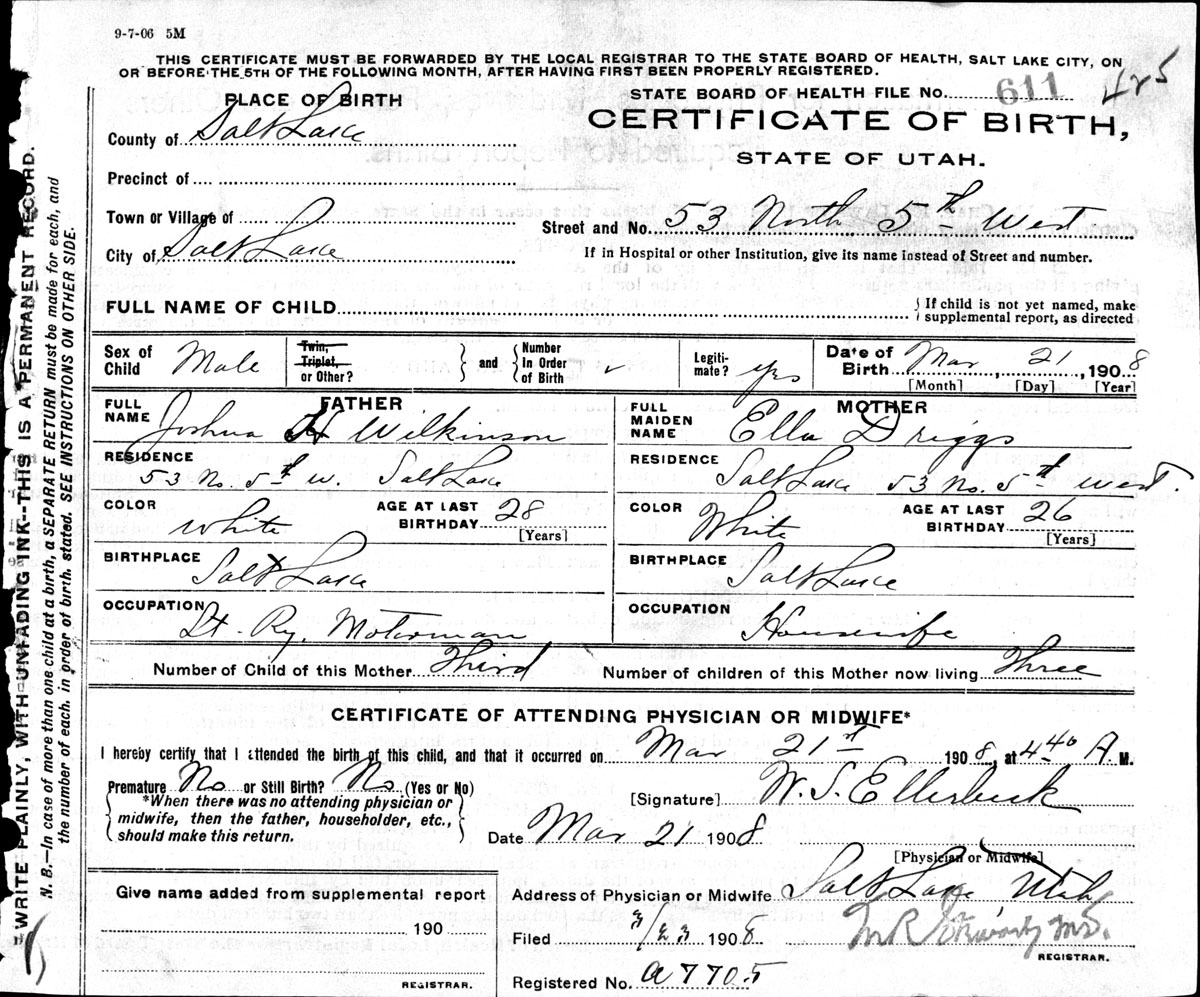 9-7-06 5M
THIS CERTIFICATE MUST BE FORWARDED BY THE LOCAL REGISTRAR TO THE STATE BOARD OF HEALTH, SALT LAKE CITY, ON
OR BEFORE THE 5TH OF THE FOLLOWING MONTH, AFTER HAVING FIRST BEEN PROPERLY REGISTERED.
PLACE OF BIRTH
County of Salt Lake
Precinct of
Town or Village of
City of Salt Lake
STATE BOARD OF HEALTH FILE No. 611 425
CERTIFICATE OF BIRTH,
STATE OF UTAH.
Street and No. 53 North 5th West
If in Hospital or other Institution, give its name instead of Street and number.
FULL NAME OF CHILD
If child is not yet named, make
supplemental report, as directed
Sex of Child Male
Twin, Triplet, or Other?
and Number In Order of Birth
Legiti-mate? yes
Date of Birth Mar 21, 1908
[Month] [Day] [Year]
FATHER
FULL NAME Joshua H Wilkinson
RESIDENCE 53 No. 5th W. Salt Lake
COLOR White AGE AT LAST BIRTHDAY 28 [Years]
BIRTHPLACE Salt Lake
OCCUPATION St. Ry. Motorman
MOTHER
FULL MAIDEN NAME Ella Driggs
RESIDENCE Salt Lake 53 No. 5th West.
COLOR White AGE AT LAST BIRTHDAY 26 [Years]
BIRTHPLACE Salt Lake
OCCUPATION Housewife
Number of Child of this Mother Third Number of children of this Mother now living Three
CERTIFICATE OF ATTENDING PHYSICIAN OR MIDWIFE*
I hereby certify that I attended the birth of this child, and that it occurred on Mar 21st 1908, at 4 40 A. M.
Premature No or Still Birth? No (Yes or No)
*When there was no attending physician or
midwife, then the father, householder, etc.,
should make this return.
[Signature] W. S. Ellerbeck
Date Mar 21 1908
[Physician or Midwife]
Give name added from supplemental report
190
REGISTRAR.
Address of Physician or Midwife Salt Lake, Utah
Filed 3/23 1908
REGISTRAR.
Registered No. a 7705
WRITE PLAINLY, WITH UNFADING INK--THIS IS A PERMANENT RECORD.
N. B.--In case of more than one child at a birth, a SEPARATE RETURN must be made for each, and
the number of each, in order of birth, stated. SEE INSTRUCTIONS ON OTHER SIDE.